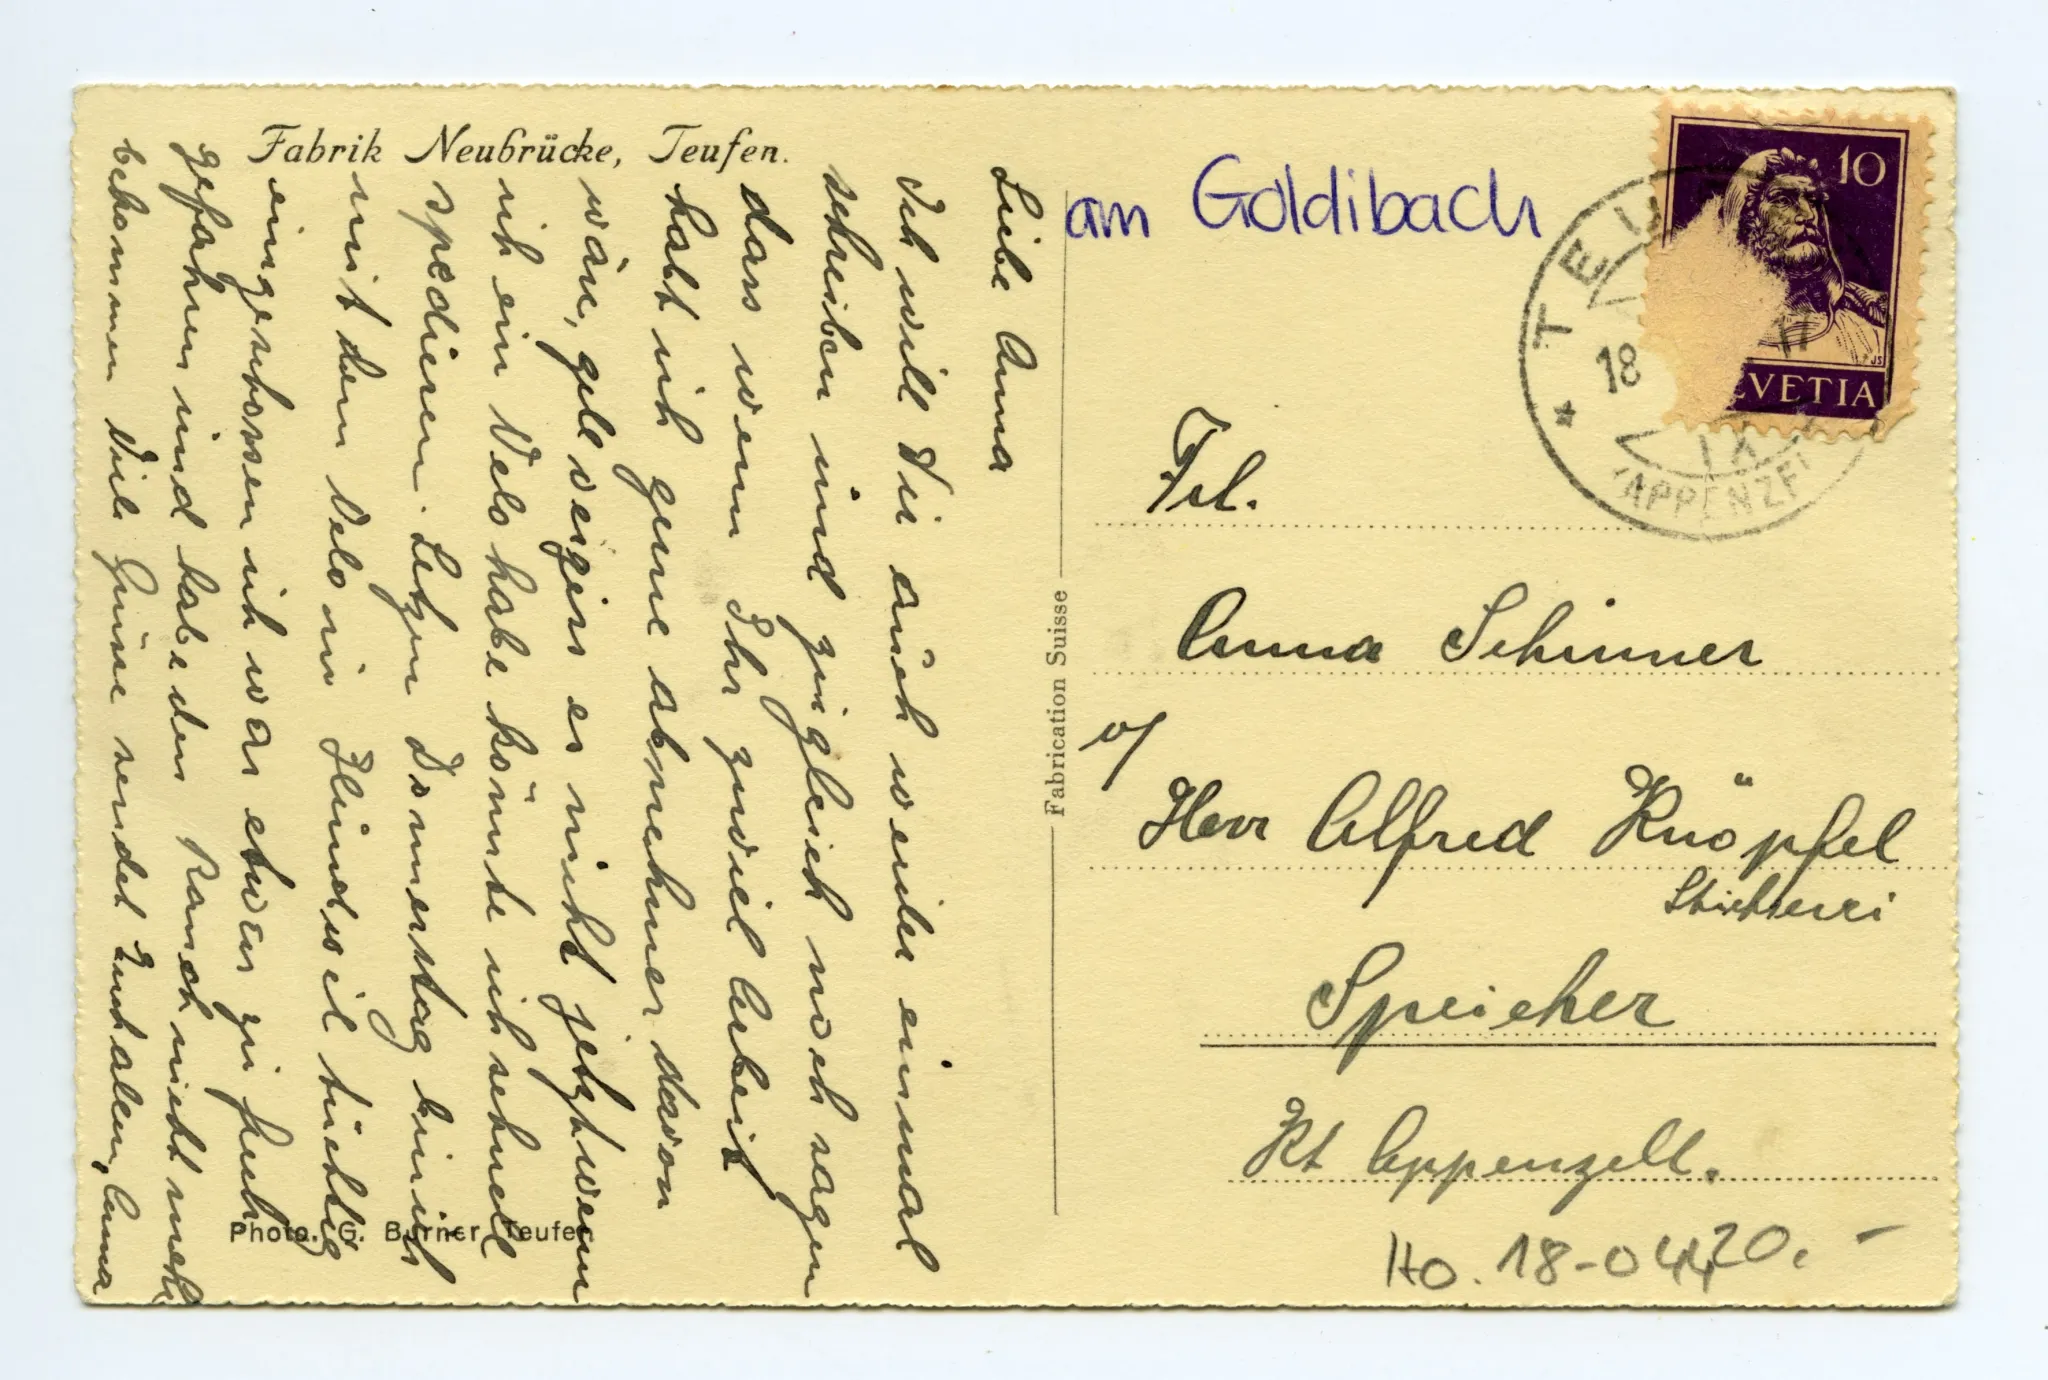 Fabrik Neubrücke, Teufen.
Liebe Anna
Ich will Dir auch wieder einmal
schreiben und zugleich noch sagen
dass wenn Ihr zuviel Arbeit
habt ich gerne abnehmer davon
wäre, gel vergiss es nicht jetzt wenn
ich ein Velo habe könnte ich schnell
spedieren. Letzen Donnerstag bin ich
mit dem Velo in Hundwil tüchtig
eingeschossen ich war etwas zu fuch
gefahren und habe den Ranck nicht mehr
bekommen Viele Grüsse sendet Euch allen, Anna
Photo. G. Burner, Teufen
Fabrication Suisse
am Goldibach
10
HELVETIA
TEUFEN
18
IX
(APPENZELL
Frl.
Anna Schirmer
o/
Herr Alfred Knöpfel
Stickerei
Speicher
Kt Appenzell.
Ho. 18-044
20.-